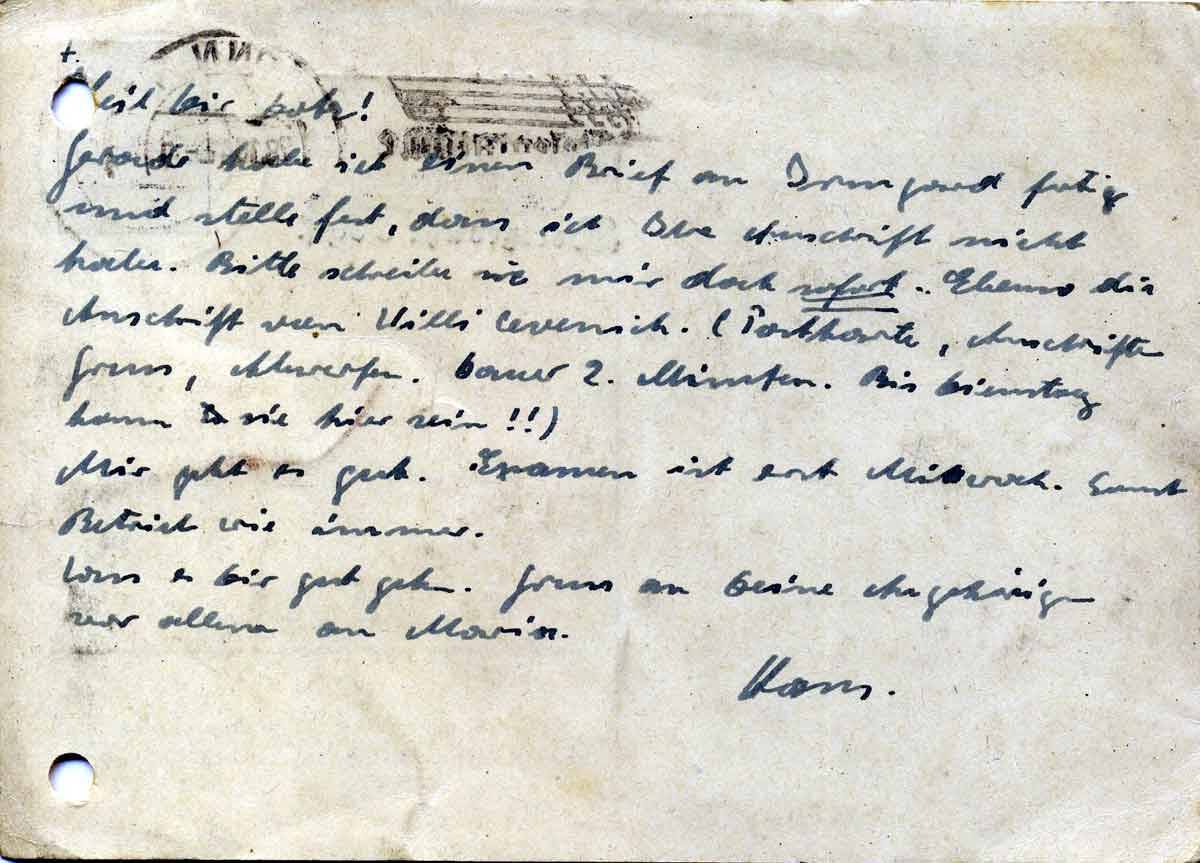 +.
Heil Dir
Gerade habe ich einen Brief an Irmgard fertig
und stelle fest, dass ich Ihre Anschrift nicht
habe. Bitte schreibe sie mir doch sofort. Ebenso die
Anschrift von Willi Levenich. (Postkarte, Anschriften
Gruss, Abwerfen. Dauer 2. Minuten. Bis Dienstag
kann sie hier sein!!)
Mir geht es gut. Examen ist erst Mittwoch. Sonst
Betrieb wie immer.
Lass es Dir gut gehn. Gruss an Deine Angehörigen
vor allem an Maria.
Hans.